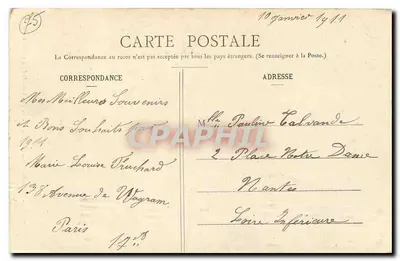 75
10 Janvier 1911
CARTE POSTALE
La Correspondance au recto n'est pas acceptée par tous les pays étrangers. (Se renseigner à la Poste.)
CORRESPONDANCE
ADRESSE
Mes Meilleurs Souvenirs
et Bons Souhaits pour
1911
Marie Louise Fruchard
138 Avenue de Wagram
Paris
17e
Mlle Pauline Talvande
2 Place Notre Dame
Nantes
Loire Inférieure
CPARAMA.COM